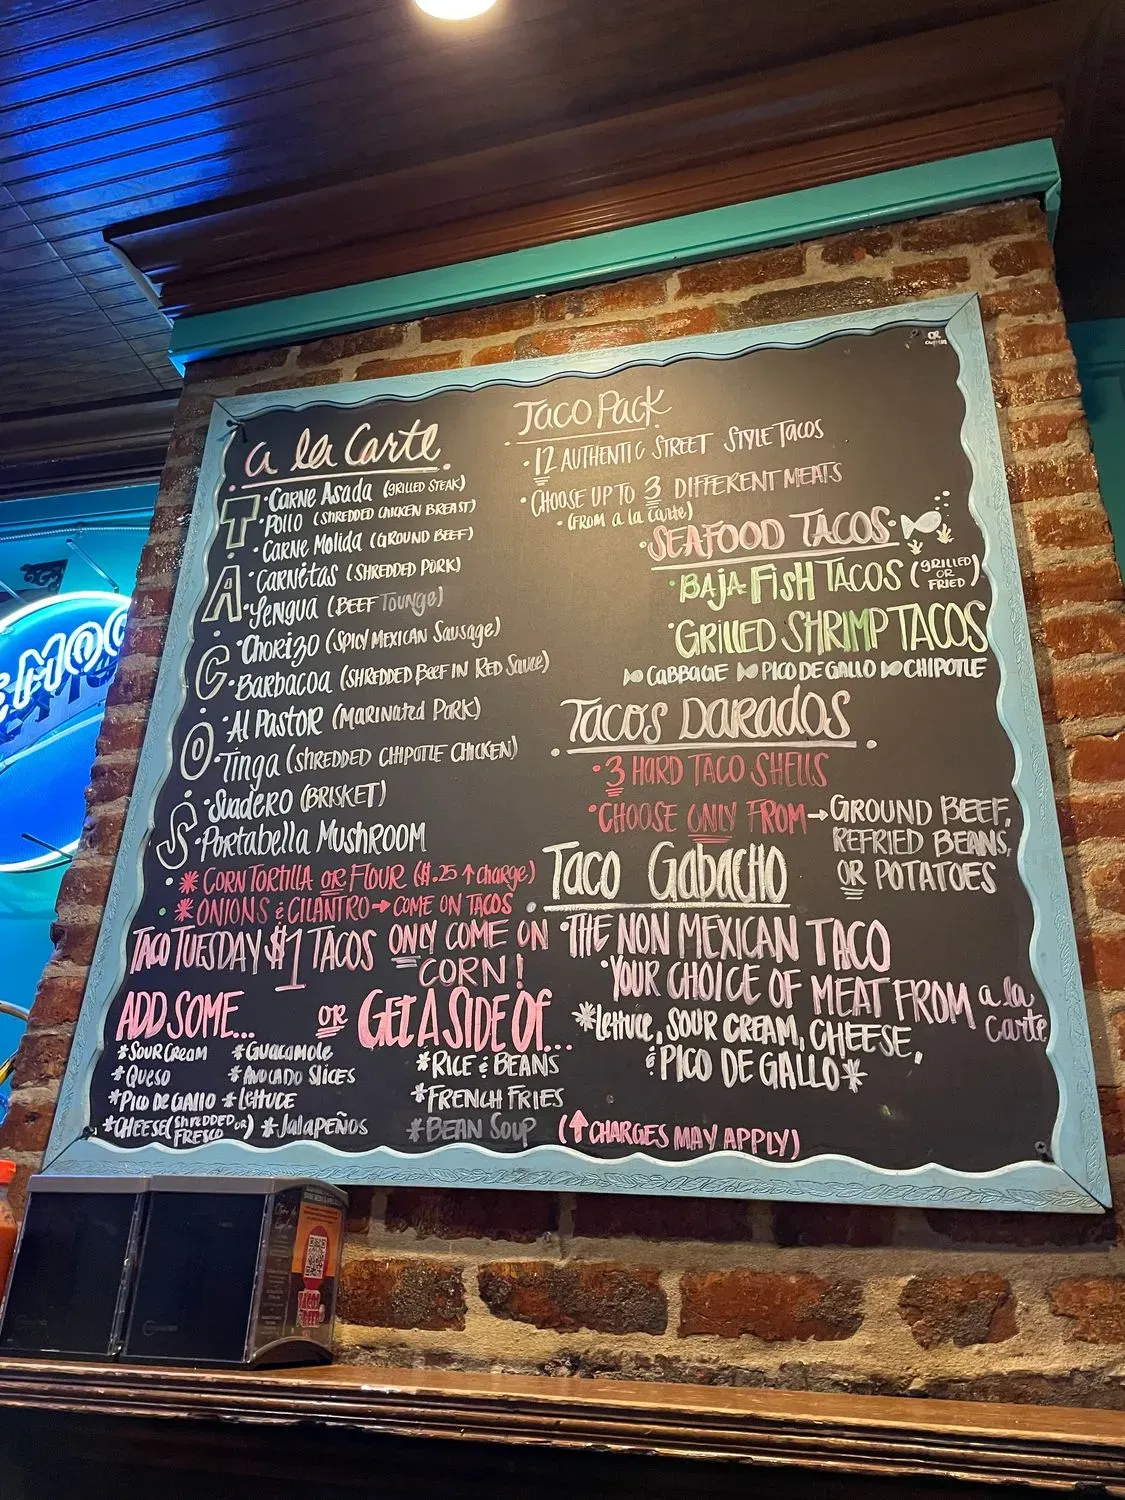 a la Carte
TACOS
• Carne Asada (Grilled Steak)
• Pollo (Shredded Chicken Breast)
• Carne Molida (Ground Beef)
• Carnitas (Shredded Pork)
• Lengua (Beef Tounge)
• Chorizo (Spicy Mexican Sausage)
• Barbacoa (Shredded Beef in Red Sauce)
• Al Pastor (Marinated Pork)
• Tinga (Shredded Chipotle Chicken)
• Suadero (Brisket)
• Portabella Mushroom
* Corn Tortilla or Flour ($.25 ↑ charge)
* Onions & Cilantro → come on tacos
Taco Tuesday $1 Tacos only come on
corn!
Add some...
* Sour Cream * Guacamole
* Queso * Avocado Slices
* Pico de Gallo * Lettuce
* Cheese (Shredded or Fresco) * Jalapeños
or Get a side of...
* Rice & Beans
* French Fries
* Bean Soup (↑ charges may apply)
Taco Pack
• 12 Authentic Street Style Tacos
• Choose up to 3 different meats
• (from a la carte)
Seafood Tacos
• Baja Fish Tacos (grilled or fried)
• Grilled Shrimp Tacos
Cabbage Pico de Gallo Chipotle
Tacos Darados
• 3 Hard Taco Shells
• Choose only from → Ground Beef,
Refried Beans,
or Potatoes
Taco Gabacho
• The Non Mexican Taco
• Your choice of meat from a la Carte
* Lettuce, Sour Cream, Cheese,
& Pico de Gallo *